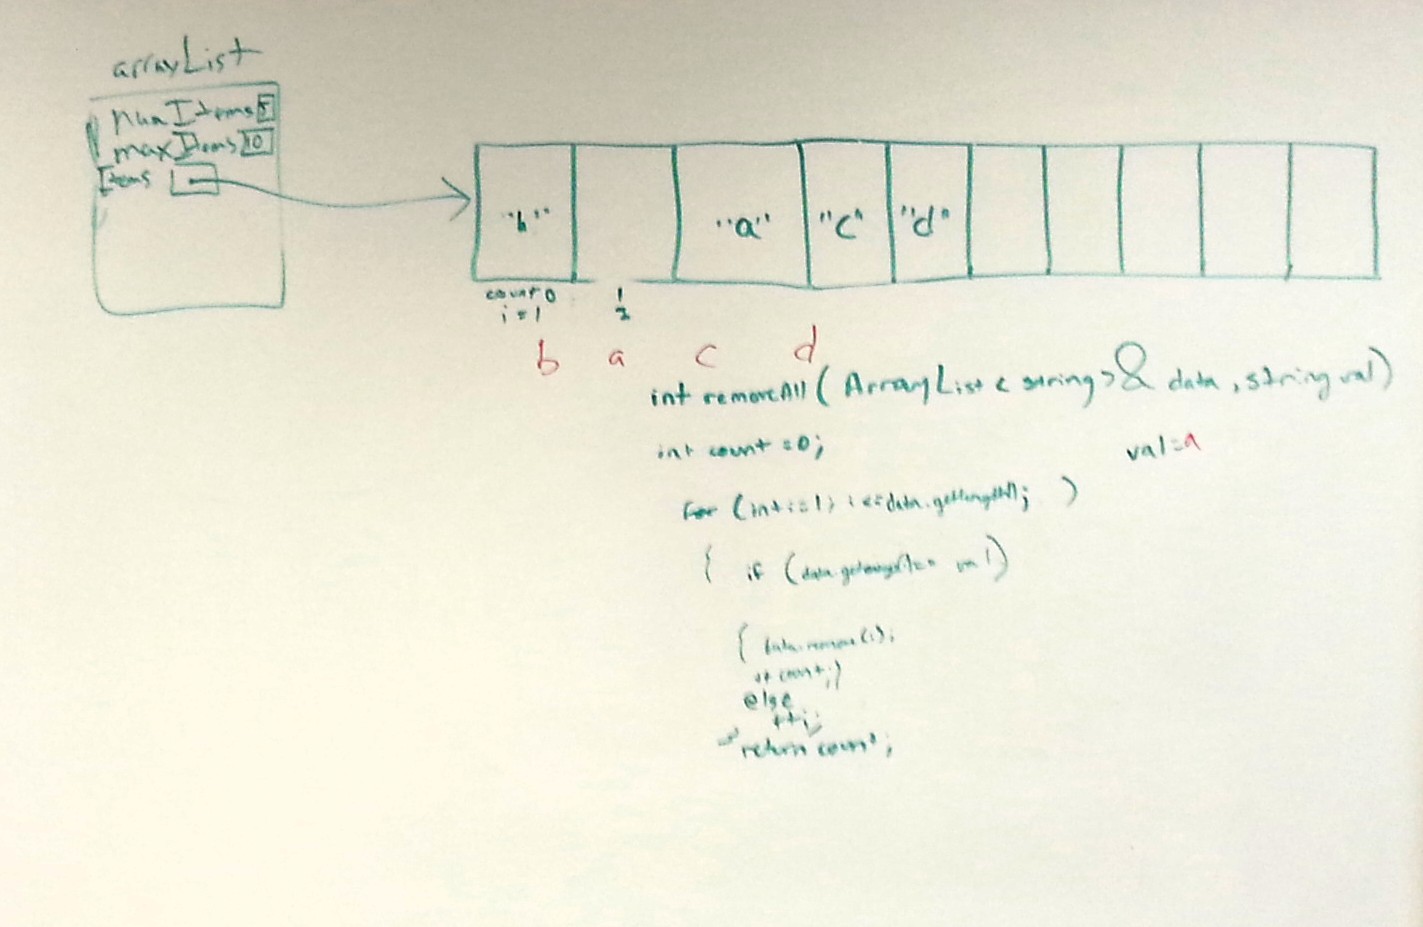 arrayList
numItems 5
maxItems 10
Items
"b" "a" "c" "d"
count 0 1
i = 1 2
b a c d
int removeAll ( ArrayList < string > & data , string val )
int count = 0;
val = a
for (int i = 1; i <= data.getLength(); )
{ if ( val )
{ data.remove(i);
++ count; }
else
++i;
return count;